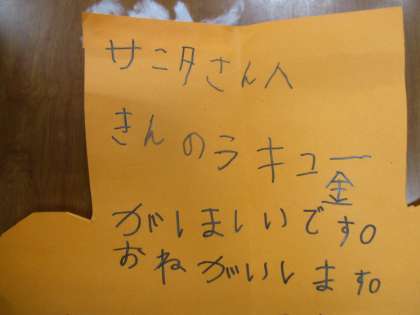 サニタさんへ
きんのラキュー
金
がしましいです。
おねがいします。